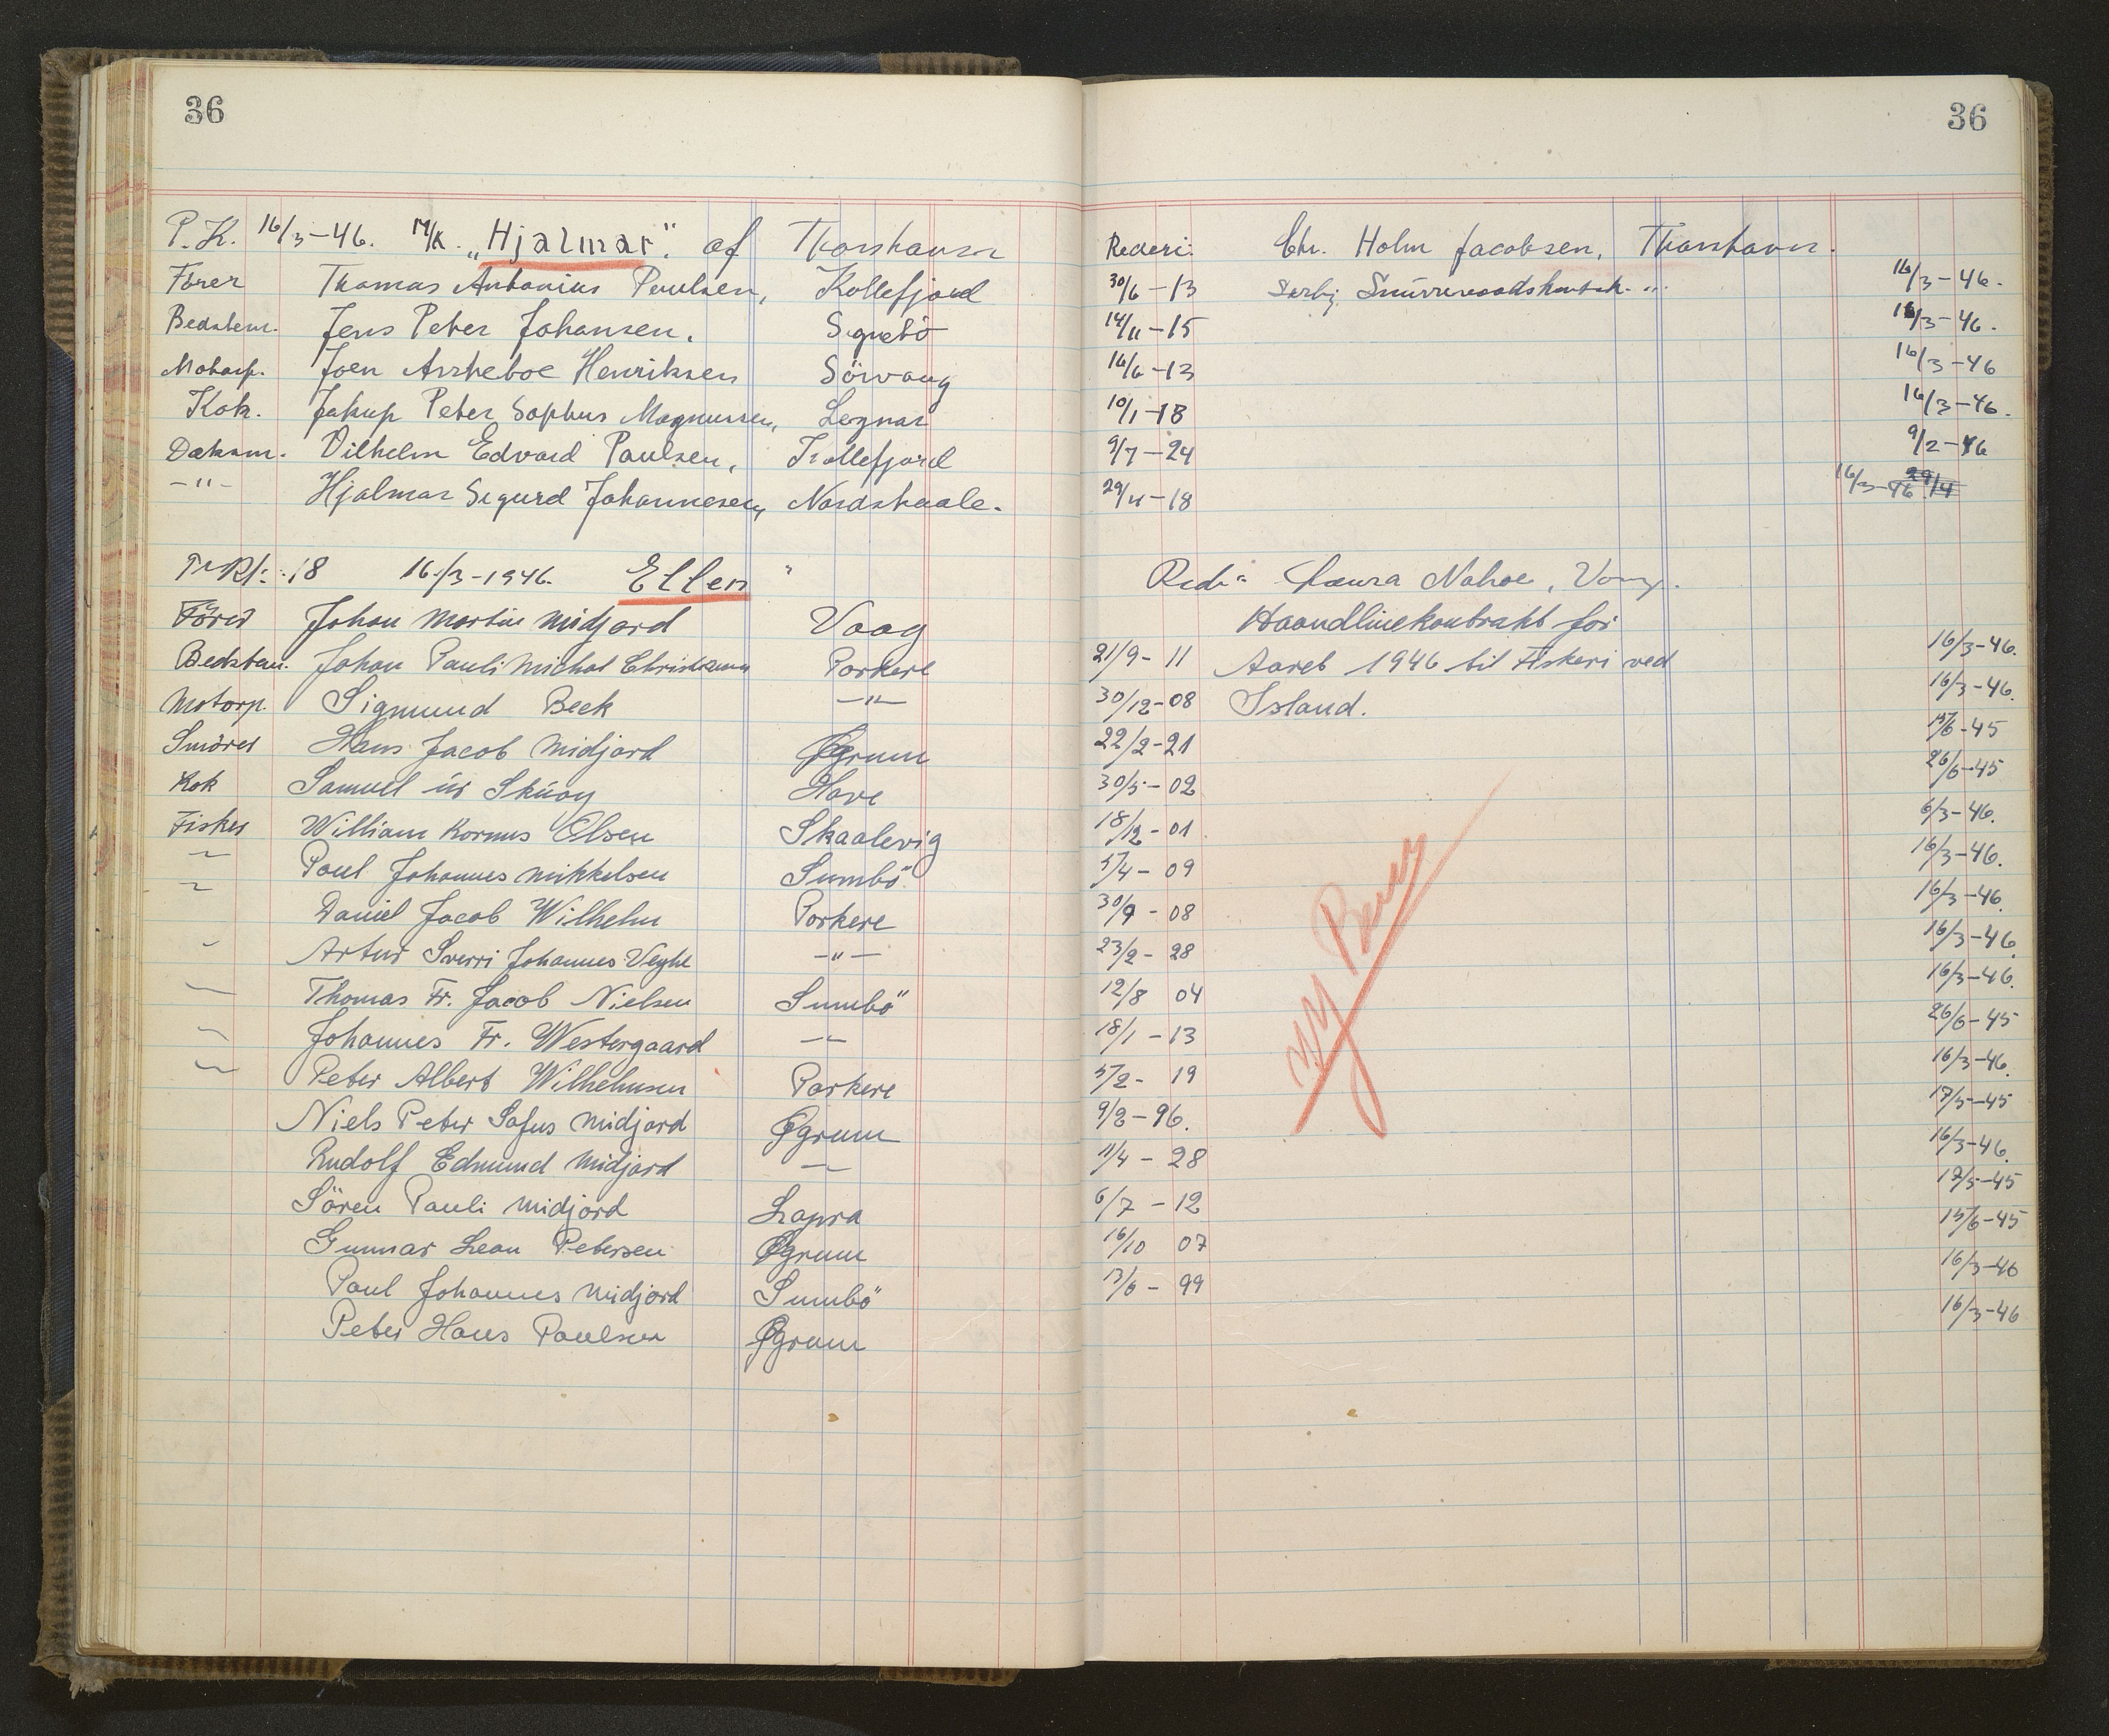 36 36
P.K. 16/3-46. M/K. „Hjalmar". af Thorshavn Rederi: Chr. Holm Jacobsen, Thorshavn.
Förer Thomas Antonius Poulsen, Kollefjord 30/6-13 Snurrevaadskontrak. 16/3-46.
Bedstem. Jens Peter Johansen. Signebö 14/11-15 16/3-46.
Motorp. Joen Arrheboe Henriksen Sörvaag 16/6-13 16/3-46
Kok. Jakup Peter Sophus Magnussen, Legnar 10/1-18 16/3-46.
Dæksm. Vilhelm Edvard Paulsen, Kollefjord 9/7-24 9/2-46
-"- Hjalmar Sigurd Johannesen, Nordskaale. 29/11-18 16/3-46 29/4
18 16./3-1946. Ellen " Laura Nolsoe, Vaag.
Förer Johan Martin Midjord Vaag Haandlinekontrakt for
Bedstem. Johan Pauli Michal Christiansen Porkere 21/9-11 Aaret 1946 til Fiskeri ved 16/3-46.
Motorp. Sigmund Beck -"- 30/12-08 Island. 16/3-46.
Smörer Hans Jacob Midjord Øgrum 22/2-21 15/6-45
Kok Samuel úr Skúoy Hove 30/5-02 26/6-45
Fisker William Kornus Olsen Skaalevig 18/12-01 6/3-46.
~ Poul Johannes Mikkelsen Sumbö 5/4-09 16/3-46.
~ Daniel Jacob Wilhelm Porkere 30/9-08 16/3-46.
~ Artur Sverri Johannes Veyhe -"- 23/2-28 16/3-46
~ Thomas Fr. Jacob Nielsen Sumbö 12/8 04 16/3-46.
~ Johannes Fr. Westergaard -"- 18/1-13 26/6-45
~ Peter Albert Wilhelmsen Porkere 5/2-19 16/3-46.
Niels Peter Sofus Midjord Øgrum 9/2-96. 17/5-45
Rudolf Edmund Midjord -"- 11/4-28 16/3-46.
Sören Pauli Midjord Lopra 6/7-12 17/5-45
Gunnar Leon Petersen Øgrum 16/10 07 15/6-45
Poul Johannes Midjord Sumbö 13/6-99 16/3-46
Peter Hans Poulsen Øgrum 16/3-46